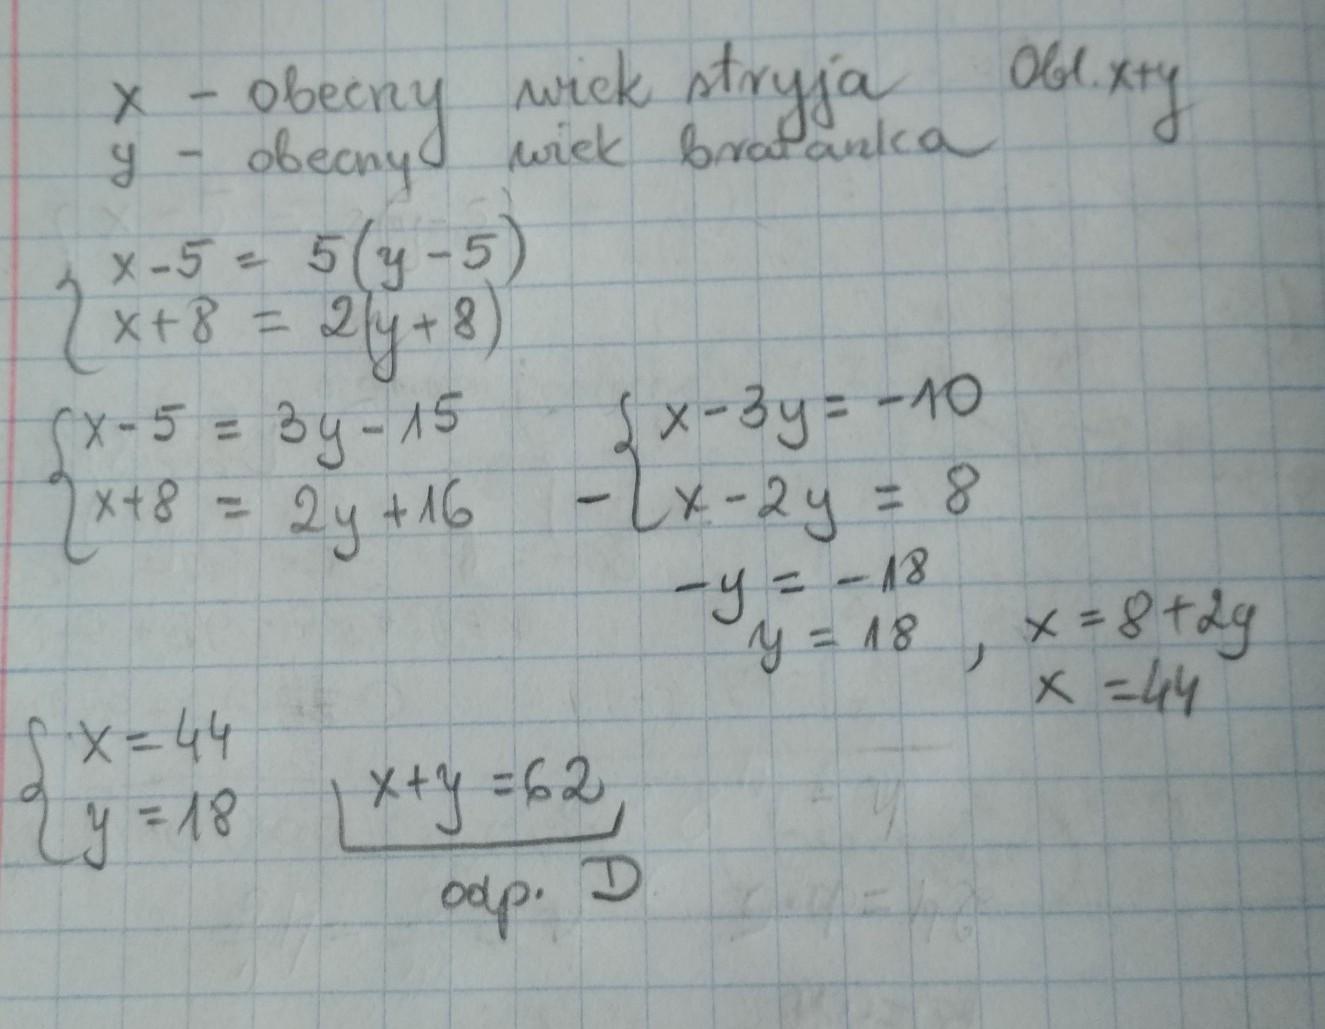 x - obecny wiek stryja Obl. x+y
y - obecny wiek bratanka
x-5 = 5(y-5)
x+8 = 2(y+8)
x-5 = 3y-15
x+8 = 2y+16
x-3y = -10
- x-2y = 8
-y = -18
y = 18 , x = 8+2y
x = 44
x = 44
y = 18
x+y = 62
odp. D